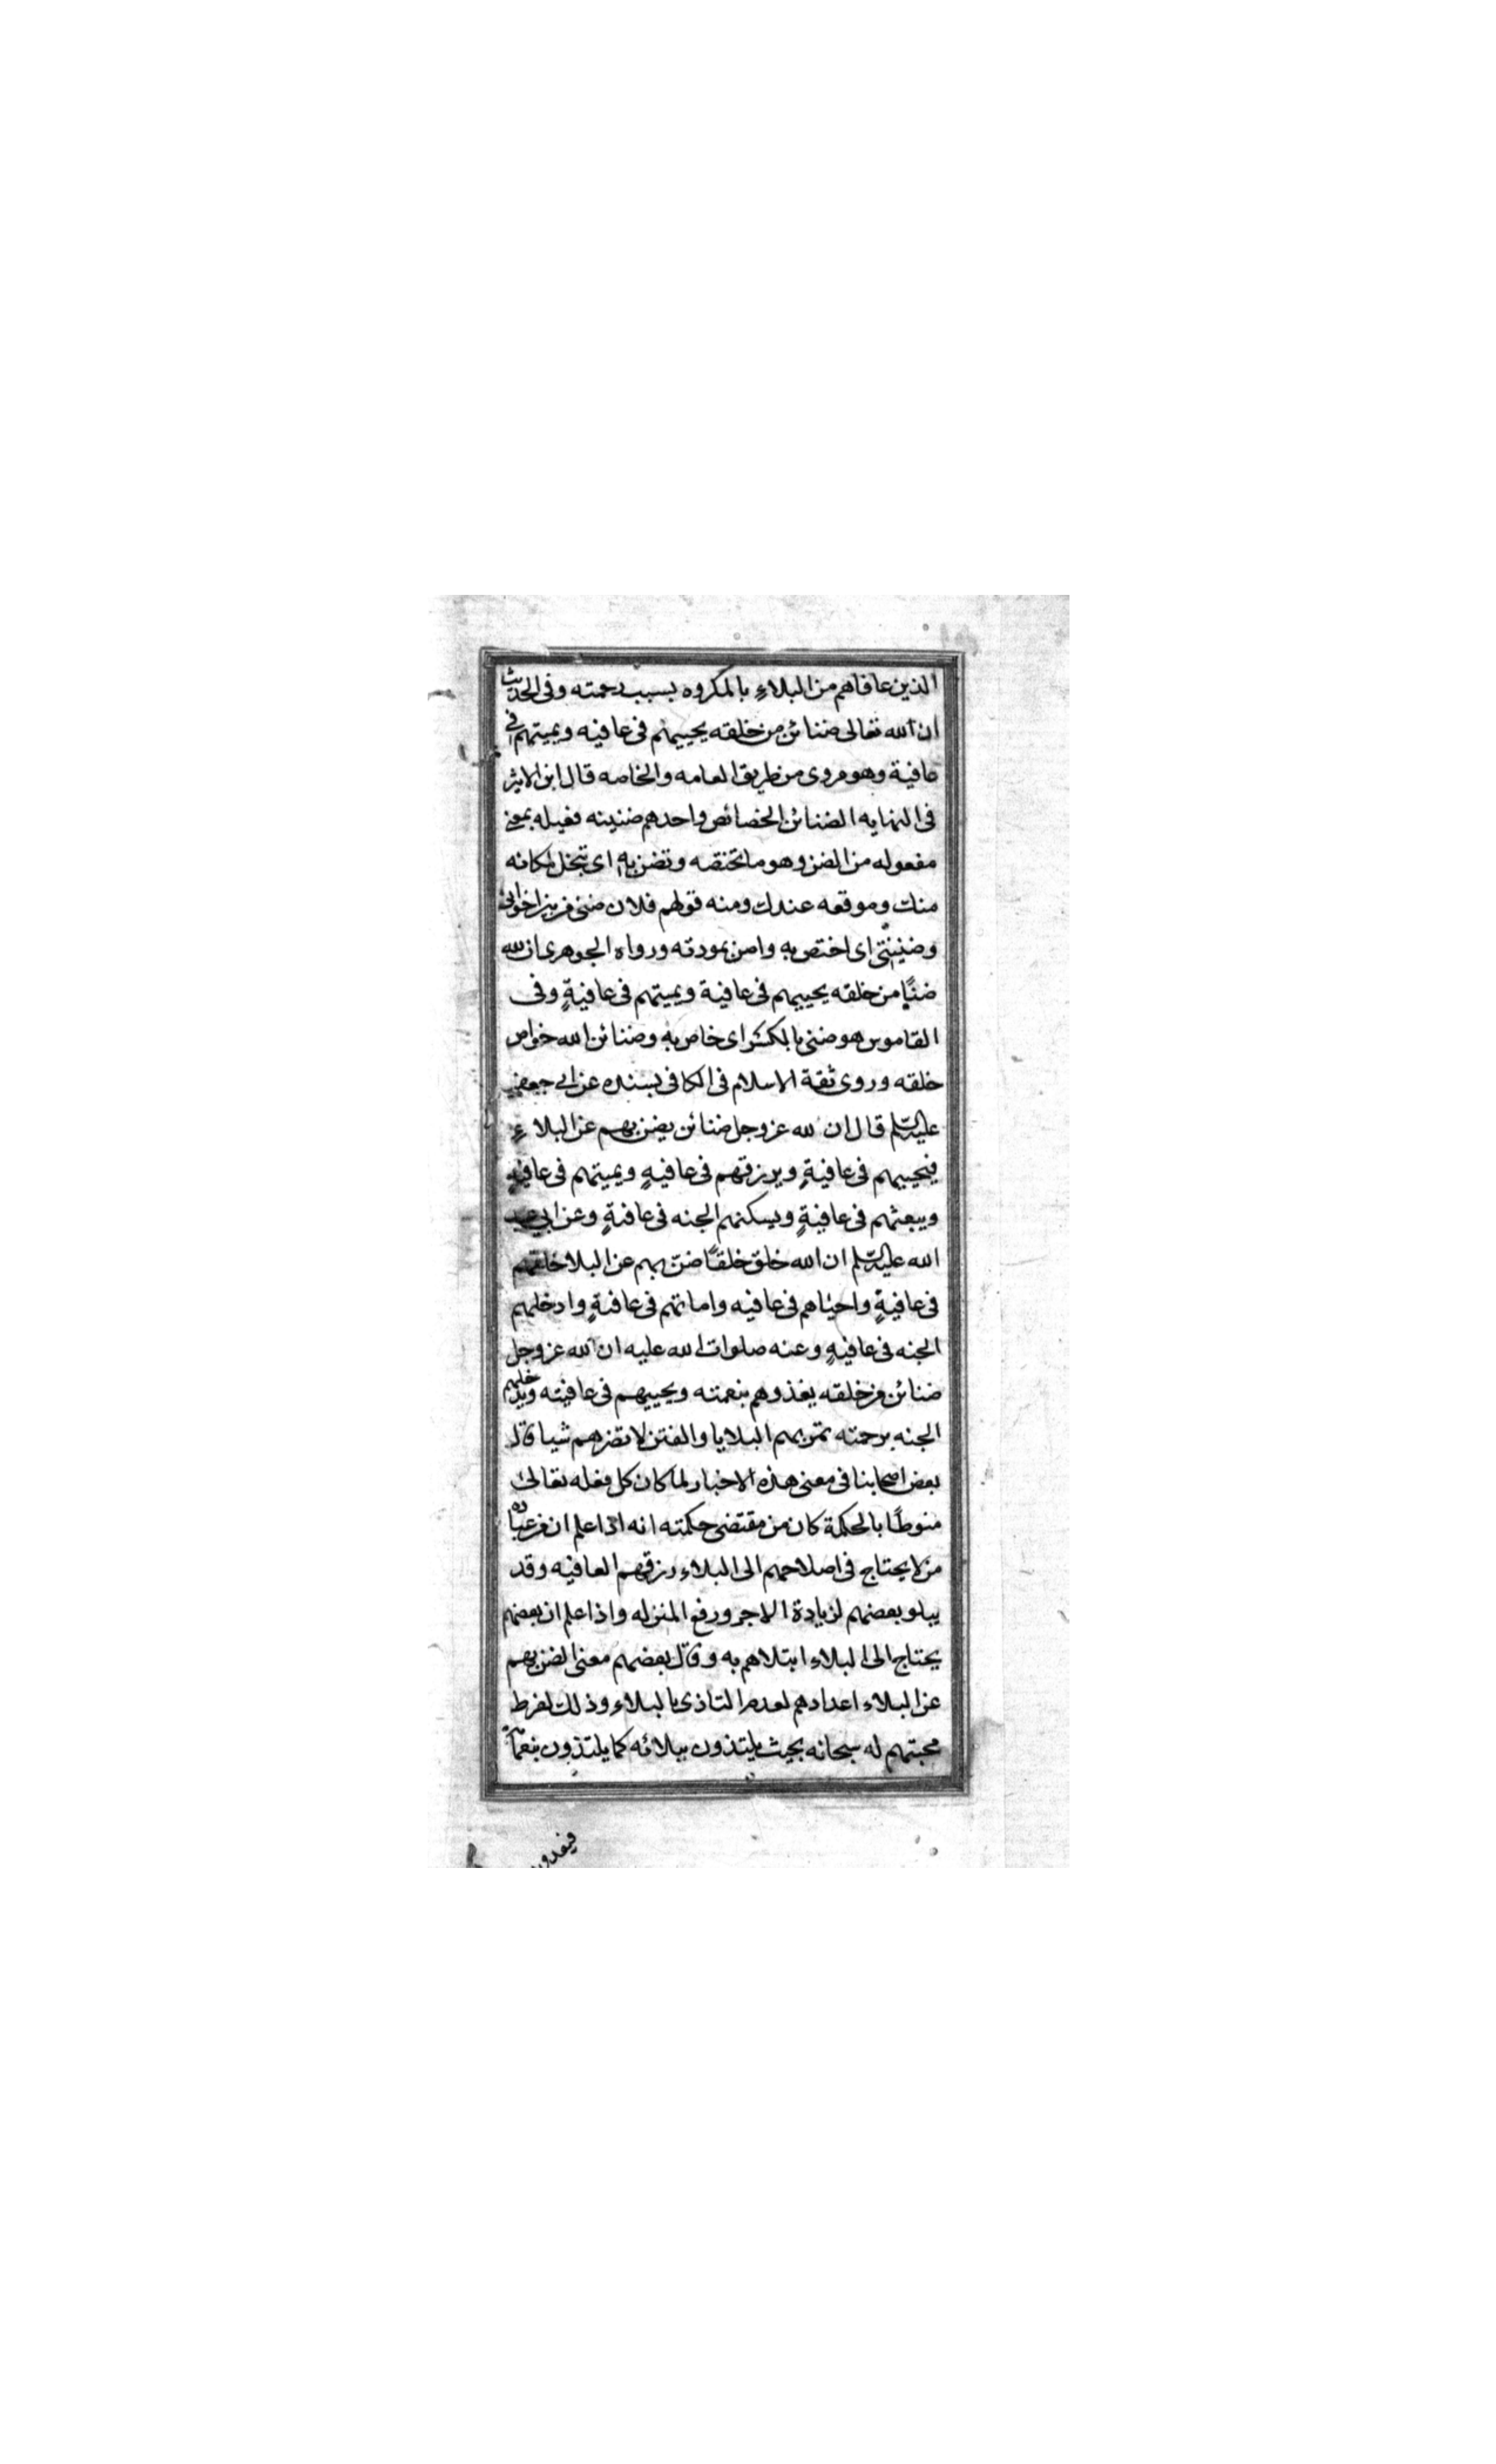 الذين عافاهم من البلاءِ بالمكروه بسبب رحمته وفى الحديث
ان الله تعالى ضنائن من خلقه يحييهم فى عافيه ويميتهم فى
عافية وهو مروى من طريق العامه والخاصه قال ابن الاثير
فى النهايه الضنائن الخصائص واحدهم ضنينه فعيله بمعنى
مفعوله من الضن وهو ما تختصه وتضن به اى تبخل لمكانه
منك وموقعه عندك ومنه قولهم فلان ضنى من بين اخوانى
وضنينتى اى اختص به واضن بمودته ورواه الجوهرى ان لله
ضنًا من خلقه يحييهم فى عافية ويميتهم فى عافيةٍ وفى
القاموس هو ضنى بالكسر اى خاص به وضنائن الله خواص
خلقه وروى ثقة الاسلام فى الكافى بسنده عن ابى جعفر
عليه السلم قال ان لله عز وجل ضنائن يضن بهم عن البلاءِ
فيحييهم فى عافيةٍ ويرزقهم فى عافيهٍ ويميتهم فى عافيهٍ
ويبعثهم فى عافيةٍ ويسكنهم الجنه فى عافيةٍ وعن ابى عبد
الله عليه السلم ان الله خلق خلقًا ضنّ بهم عن البلا خلقهم
فى عافيةٍ واحياهم فى عافيه واماتهم فى عافيةٍ وادخلهم
الجنه فى عافيهٍ وعنه صلوات الله عليه ان لله عز وجل
ضنائن من خلقه يغذوهم بنعمته ويحييهم فى عافيته ويدخلهم
الجنه برحمته تمر بهم البلايا والفتن لا تضرهم شيا قال
بعض اصحابنا فى معنى هذه الاخبار لما كان كل فعله تعالى
منوطًا بالحكمة كان من مقتضى حكمته انه اذا علم ان من عباده
من لا يحتاج فى اصلاحهم الى البلاء رزقهم العافيه وقد
يبلو بعضهم لزيادة الاجر ورفع المنزله واذا علم ان بعضهم
يحتاج الى البلاء ابتلاهم به وقال بعضهم معنى الضن بهم
عن البلاء اعدادهم لعدم التاذى بالبلاء وذلك لفرط
محبتهم له سبحانه بحيث يلتذون ببلائه كما يلتذون بنعمائه